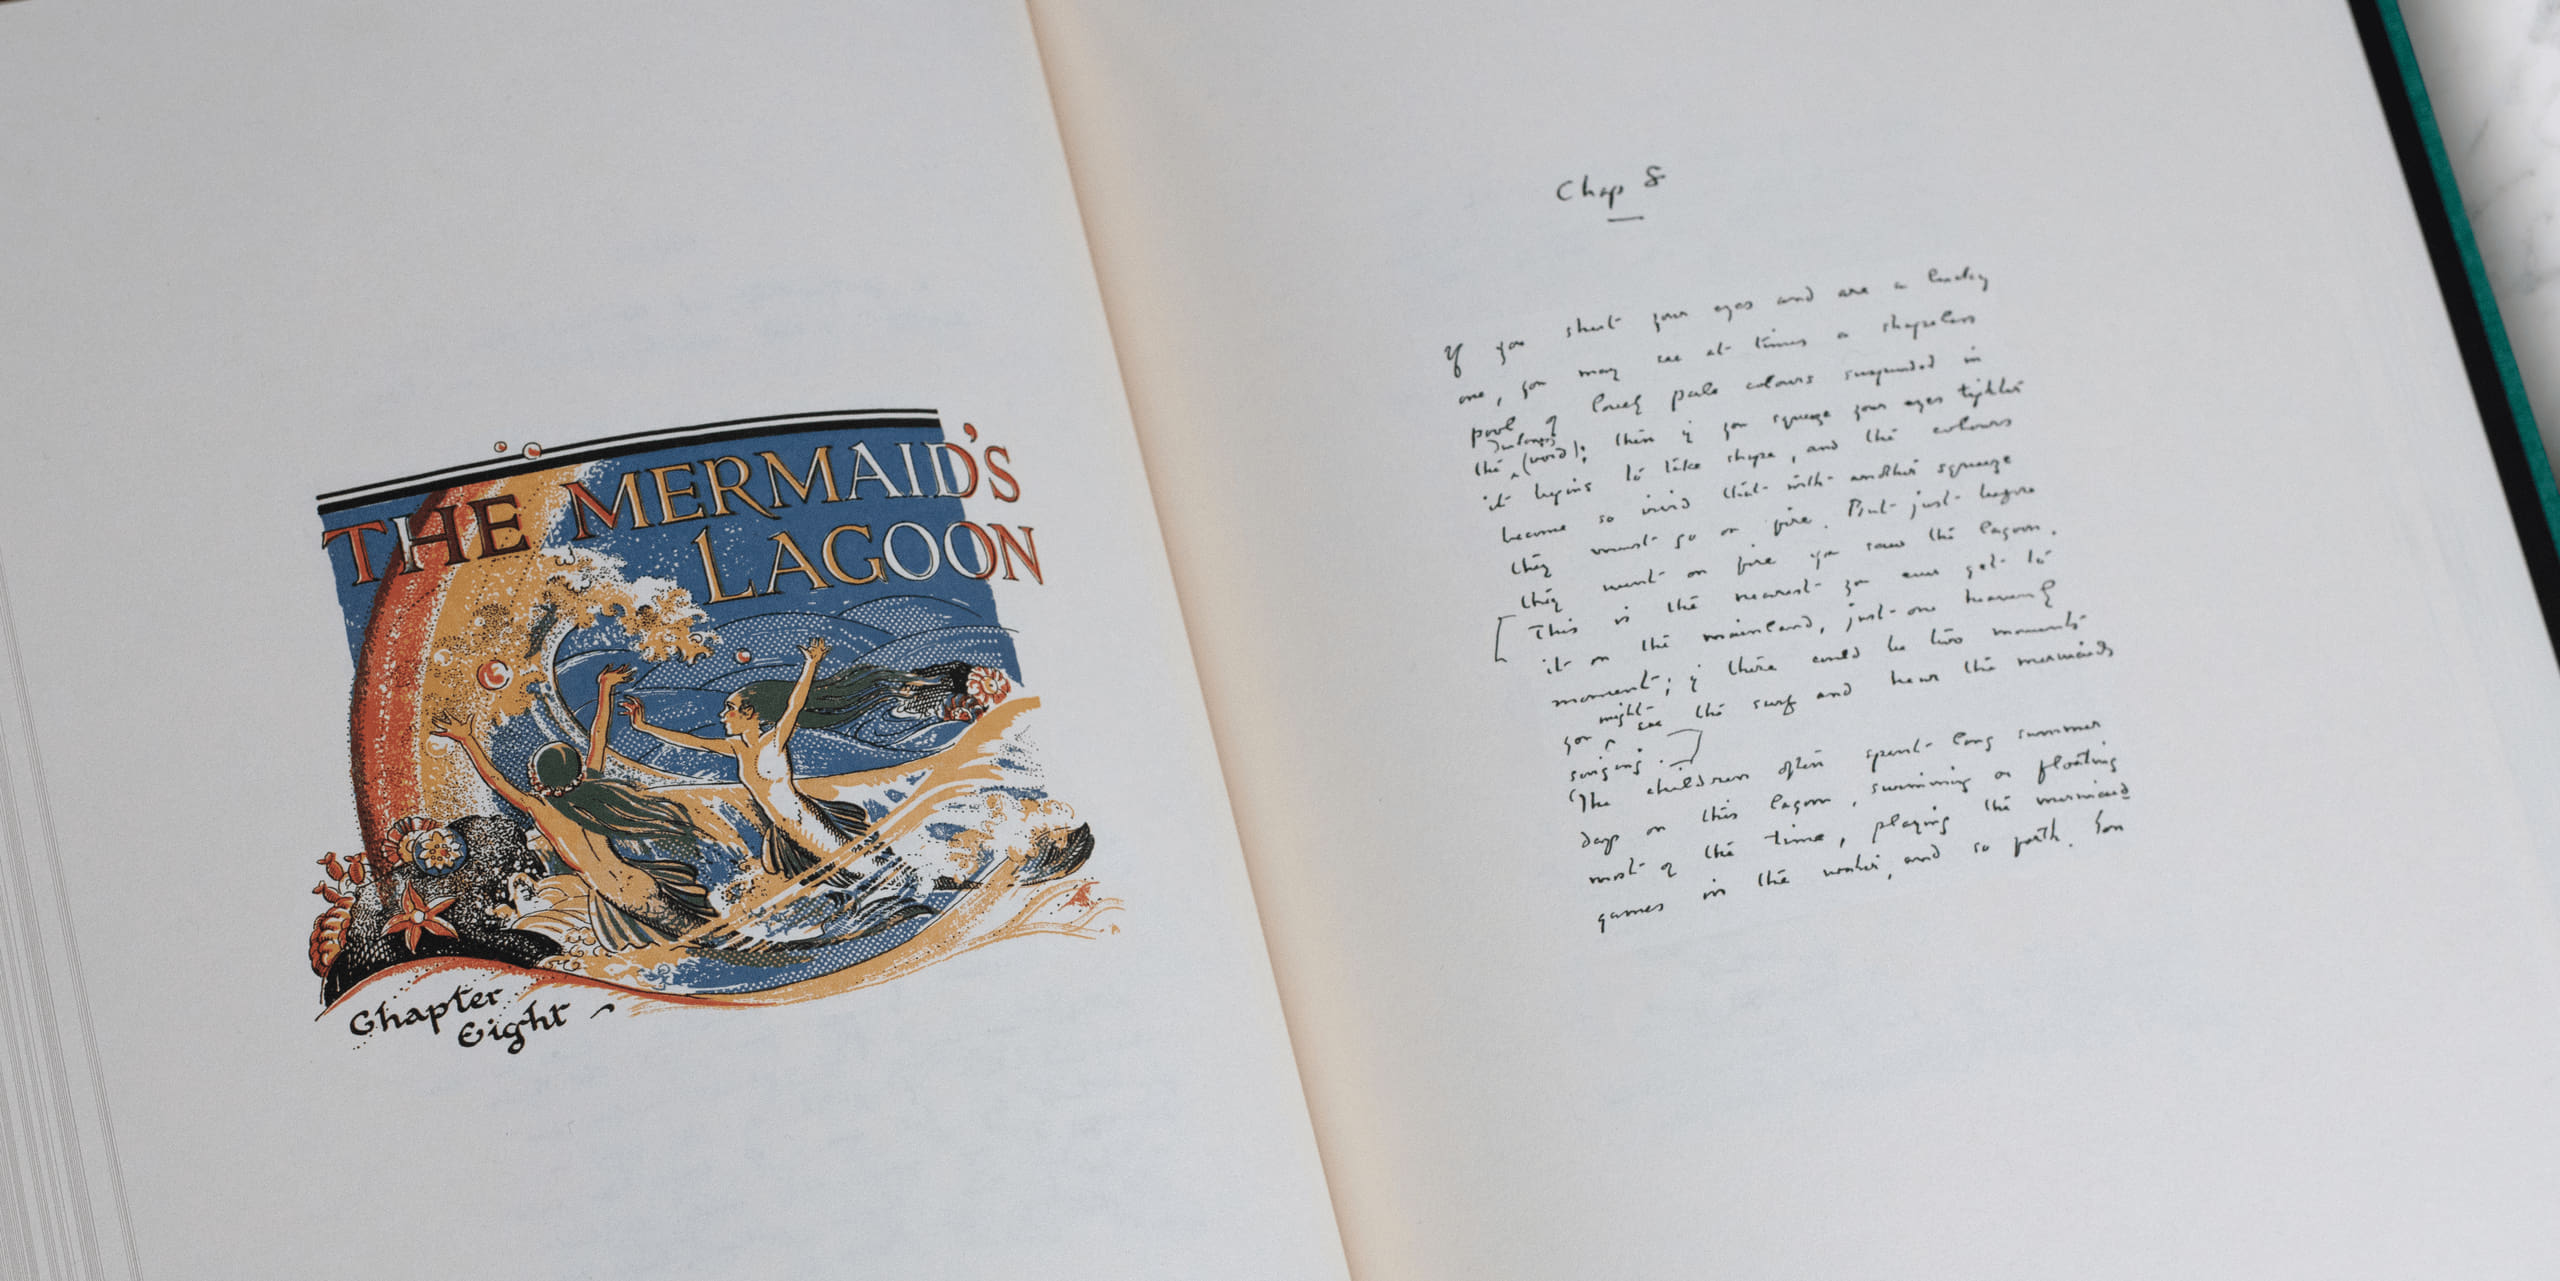 THE MERMAID'S
LAGOON
Chapter
Eight
Chap 8
If you shut your eyes and are a lucky
one, you may see at times a shapeless
pool of lovely pale colours suspended in
the (void); then if you squeeze your eyes tighter
it begins to take shape, and the colours
become so vivid that with another squeeze
they must go on fire. But just before
they went on fire you saw the lagoon.
[This is the nearest you ever get to
it on the mainland, just one heavenly
moment; if there could be two moments
you might see the surf and hear the mermaids
singing.]
The children often spent long summer
days on this lagoon, swimming or floating
most of the time, playing the mermaid
games in the water, and so forth. You